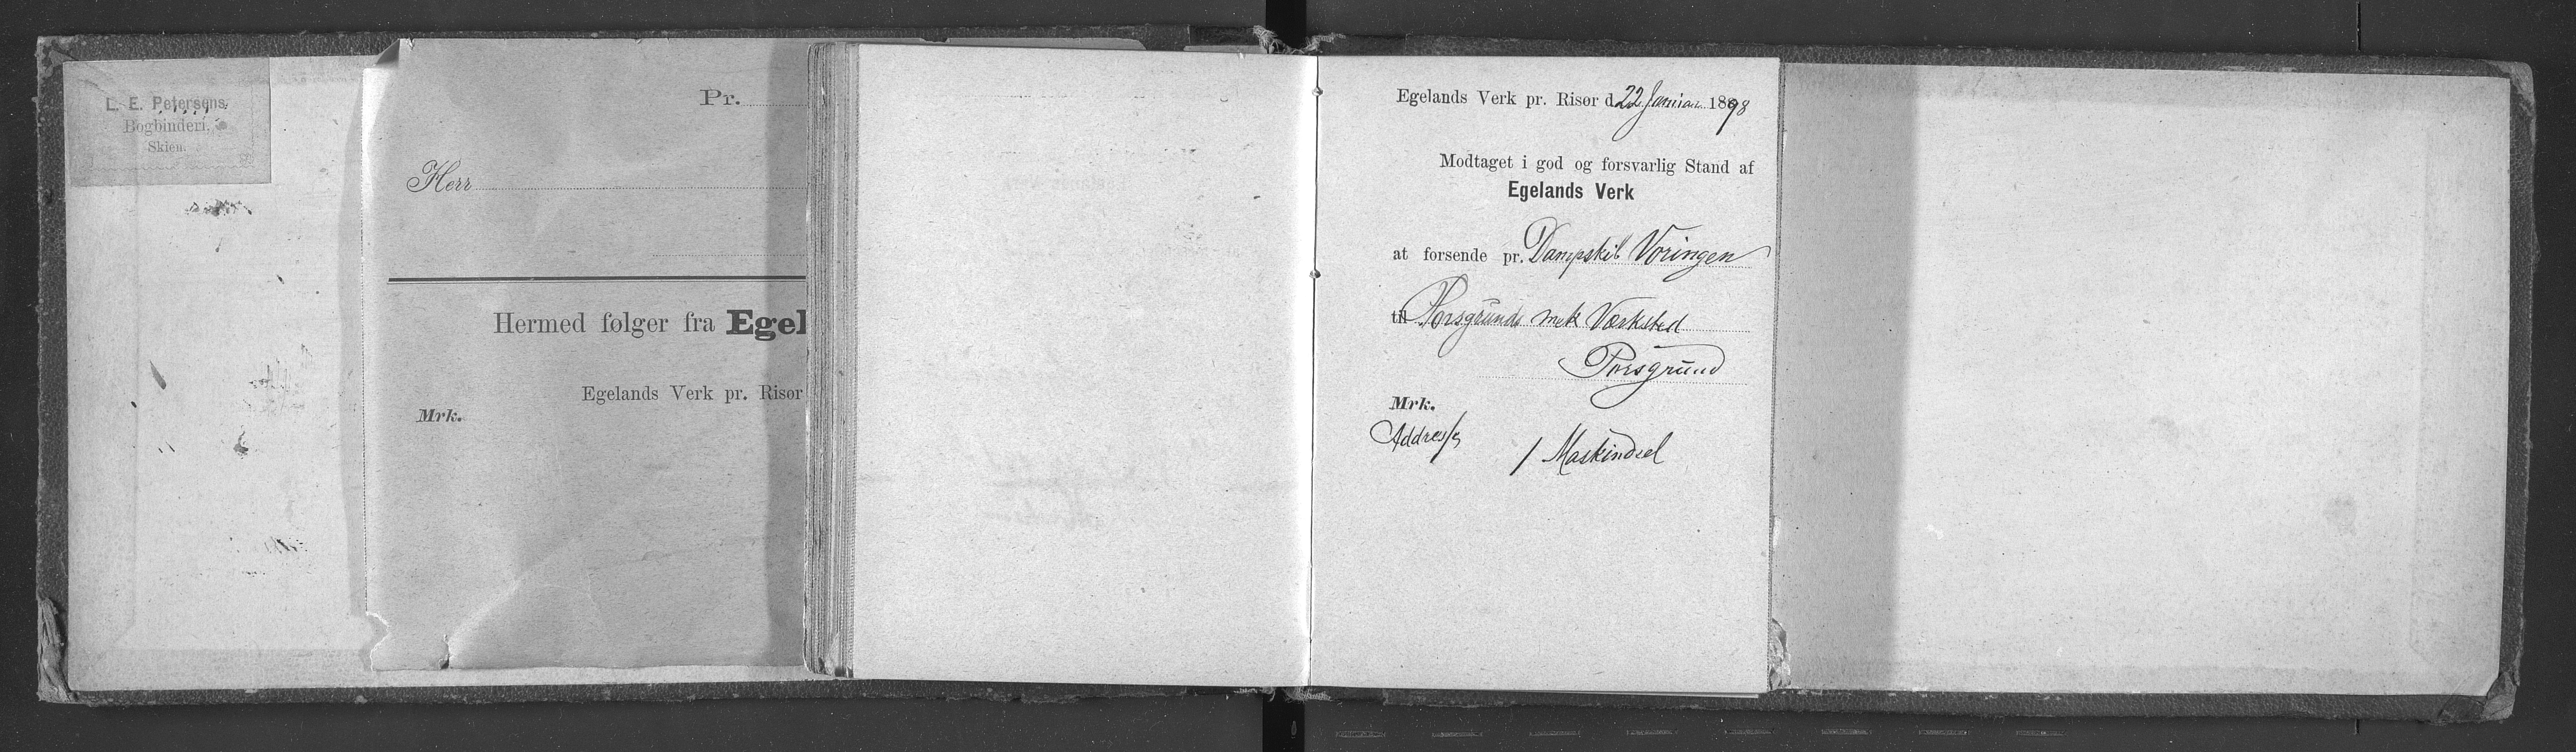 L. E. Petersens
Bogbinderi,
Skien.
Pr.
Herr
Hermed følger fra Egel
Egelands Verk pr. Risør
Mrk.
Egelands Verk pr. Risør d. 22 Januar 1898
Modtaget i god og forsvarlig Stand af
Egelands Verk
at forsende pr. Dampskib Vøringen
til Porsgrunds mek Værksted
Porsgrund
Mrk.
Addresse
1 Maskindel